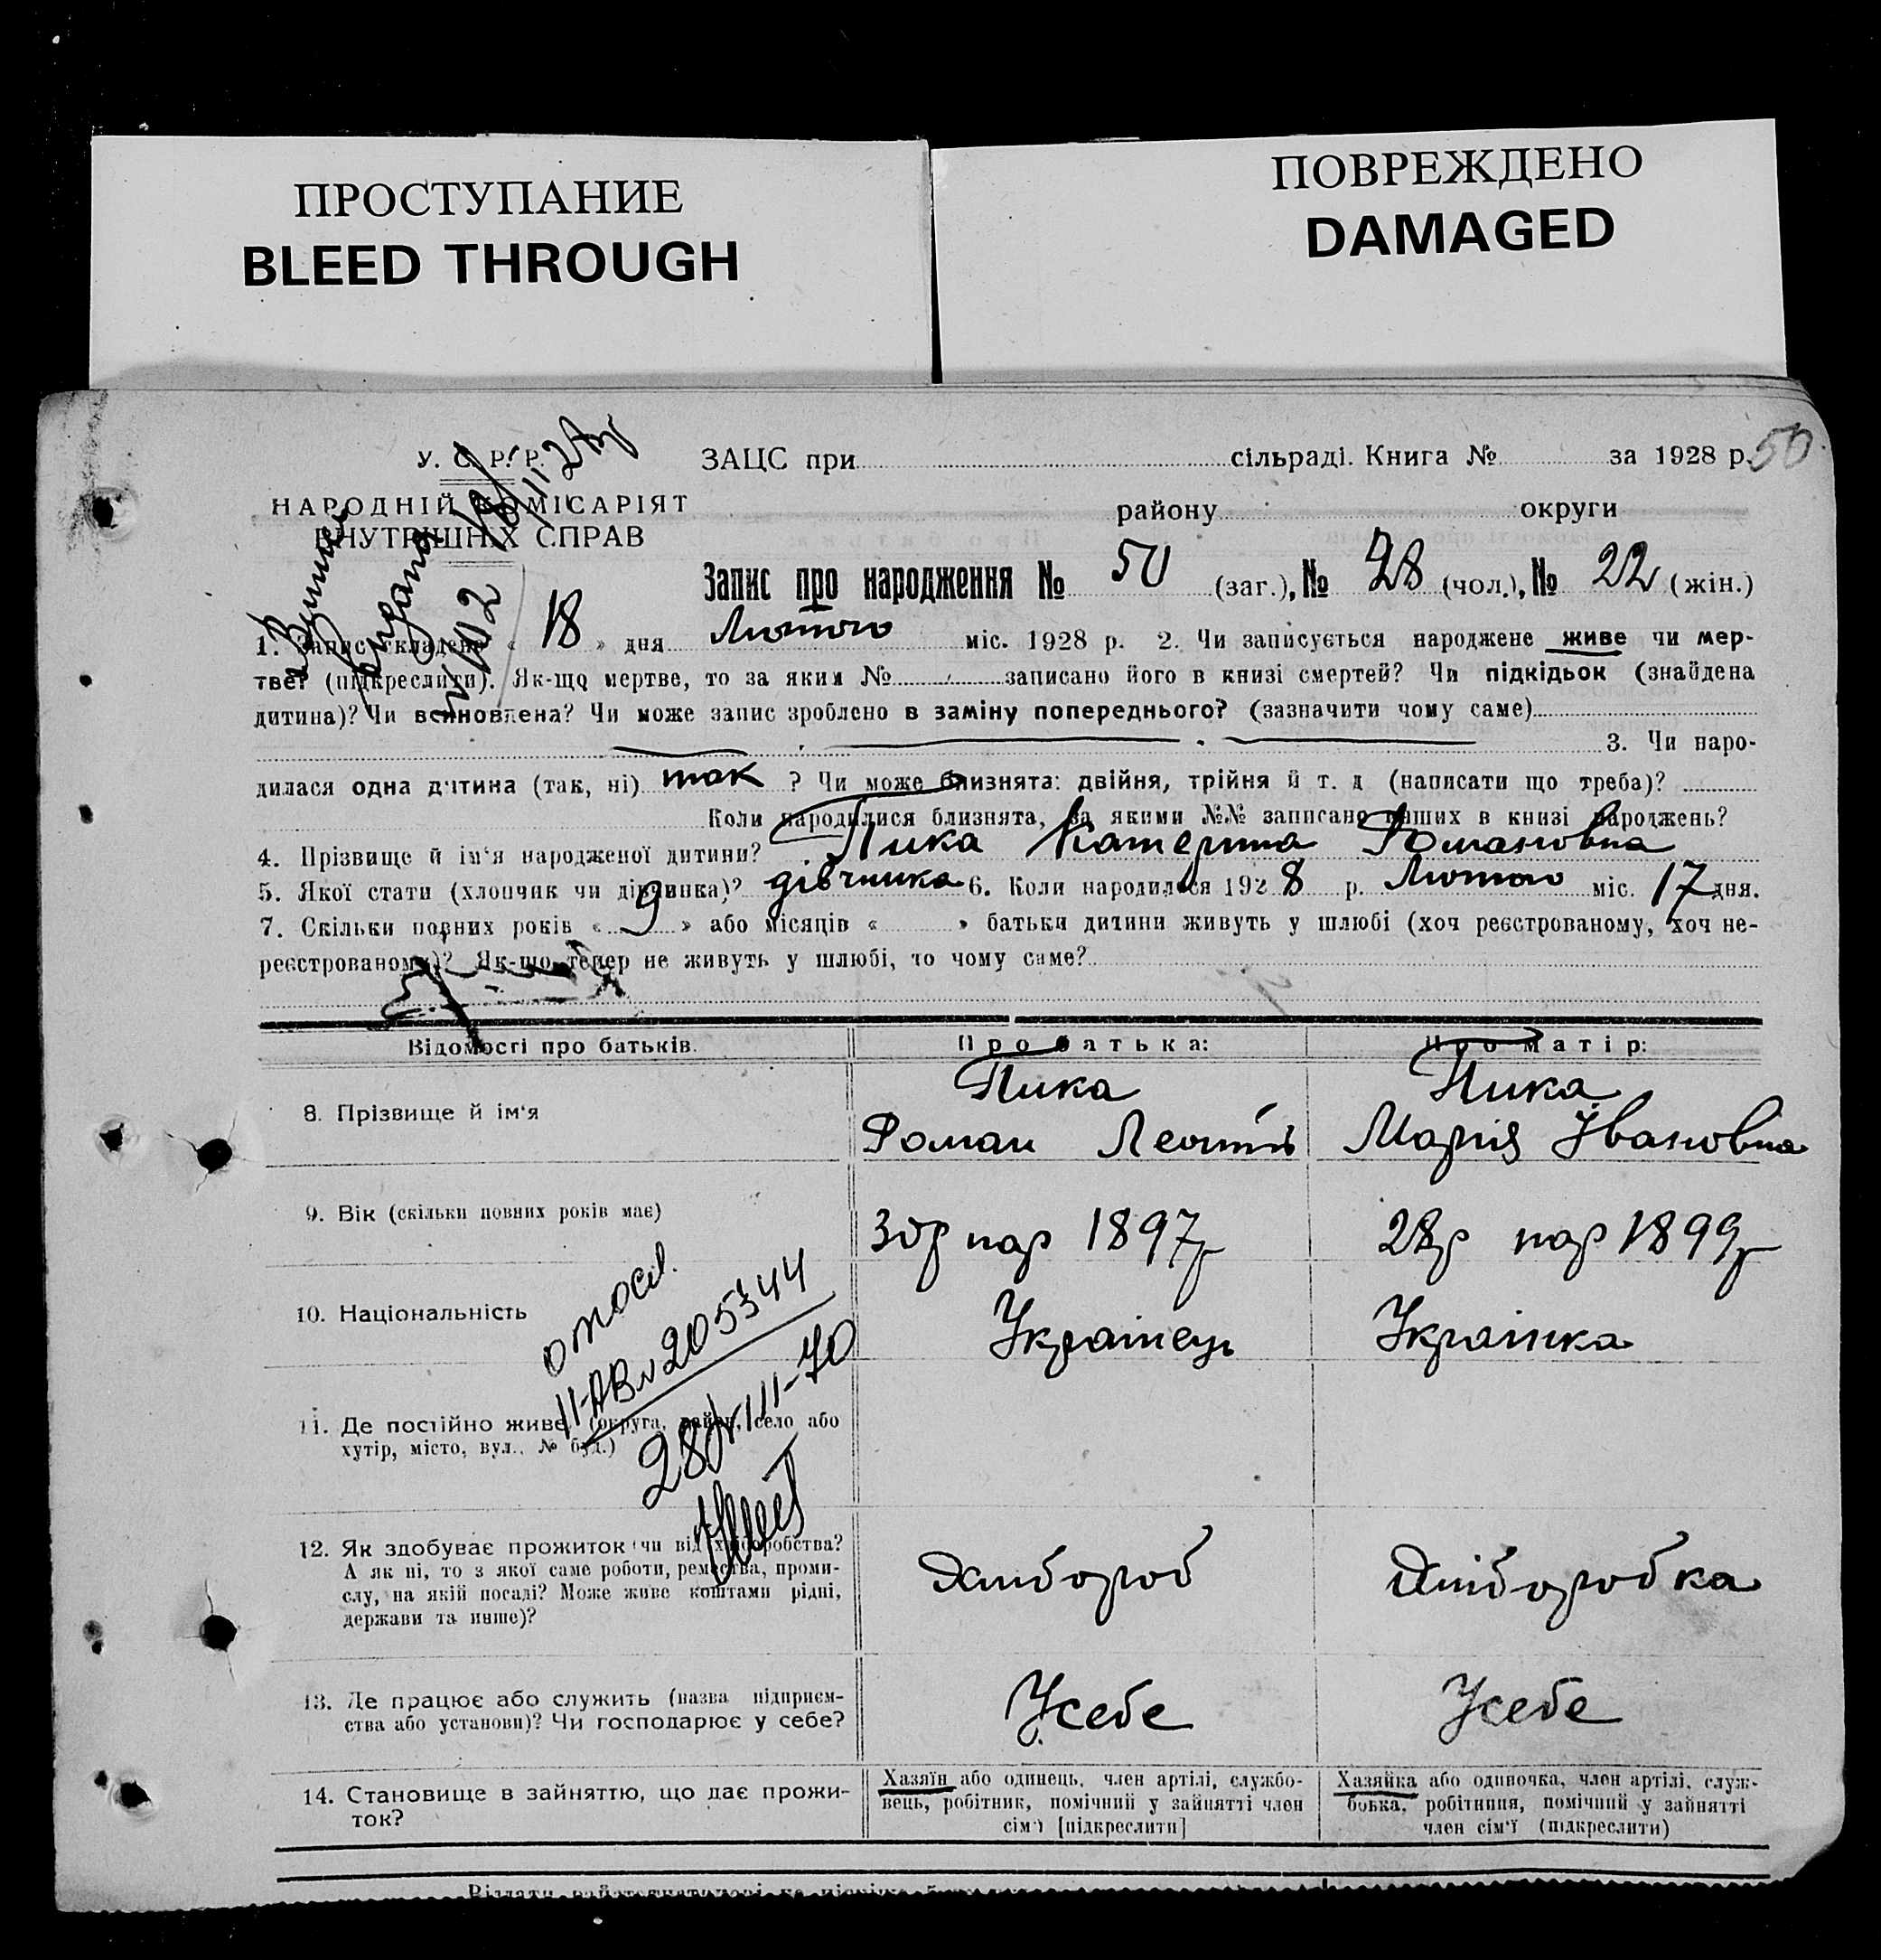 ПРОСТУПАНИЕ
BLEED THROUGH
ПОВРЕЖДЕНО
DAMAGED
У. С. Р. Р.
НАРОДНІЙ КОМІСАРІЯТ
ВНУТРІШНІХ СПРАВ
ЗАЦС при сільраді. Книга № за 1928 р. 50
району округи
Запис про народження № 50 (заг.), № 28 (чол.), № 22 (жін.)
1. Запис складено « 18 » дня Лютого міс. 1928 р. 2. Чи записується народжене живе чи мер-
тве? (підкреслити). Як-що мертве, то за яким № записано його в книзі смертей? Чи підкідьок (знайдена
дитина)? Чи всиновлена? Чи може запис зроблено в заміну попереднього? (зазначити чому саме)
3. Чи наро-
дилася одна дитина (так, ні) так ? Чи може близнята: двійня, трійня й т. д (написати що треба)?
Коли народилися близнята, за якими №№ записано інших в книзі народжень?
4. Прізвище й ім'я народженої дитини? Пика Катерина Романовна
5. Якої стати (хлопчик чи дівчинка)? дівчинка 6. Коли народилася 1928 р. Лютого міс. 17 дня.
7. Скільки повних років « 9 » або місяців « » батьки дитини живуть у шлюбі (хоч реєстрованому, хоч не-
реєстрованому)? Як-що тепер не живуть у шлюбі, то чому саме?
Відомості про батьків. Про батька: Про матір:
8. Прізвище й ім'я
Пика
Роман Леонтів
Пика
Марія Івановна
9. Вік (скільки повних років має) 30р нар 1897р 28р нар 1899р
10. Національність Українець Українка
отосл.
II-АВ № 205344
28/VIII-70
11. Де постійно живе (округа, район, село або
хутір, місто, вул., № буд.)
12. Як здобуває прожиток (чи від хліборобства?
А як ні, то з якої саме роботи, ремества, проми-
слу, на якій посаді? Може живе коштами рідні,
держави та инше)?
Хлибороб Хліборобка
13. Де працює або служить (назва підприєм-
ства або установи)? Чи господарює у себе?
Усебе Усебе
14. Становище в зайняттю, що дає прожи-
ток?
Хазяїн або одинець, член артілі, службо-
вець, робітник, помічний у зайнятті член
сім'ї [підкреслити]
Хазяйка або одиночка, член артілі, служ-
бовка, робітниця, помічний у зайнятті
член сім'ї (підкреслити)